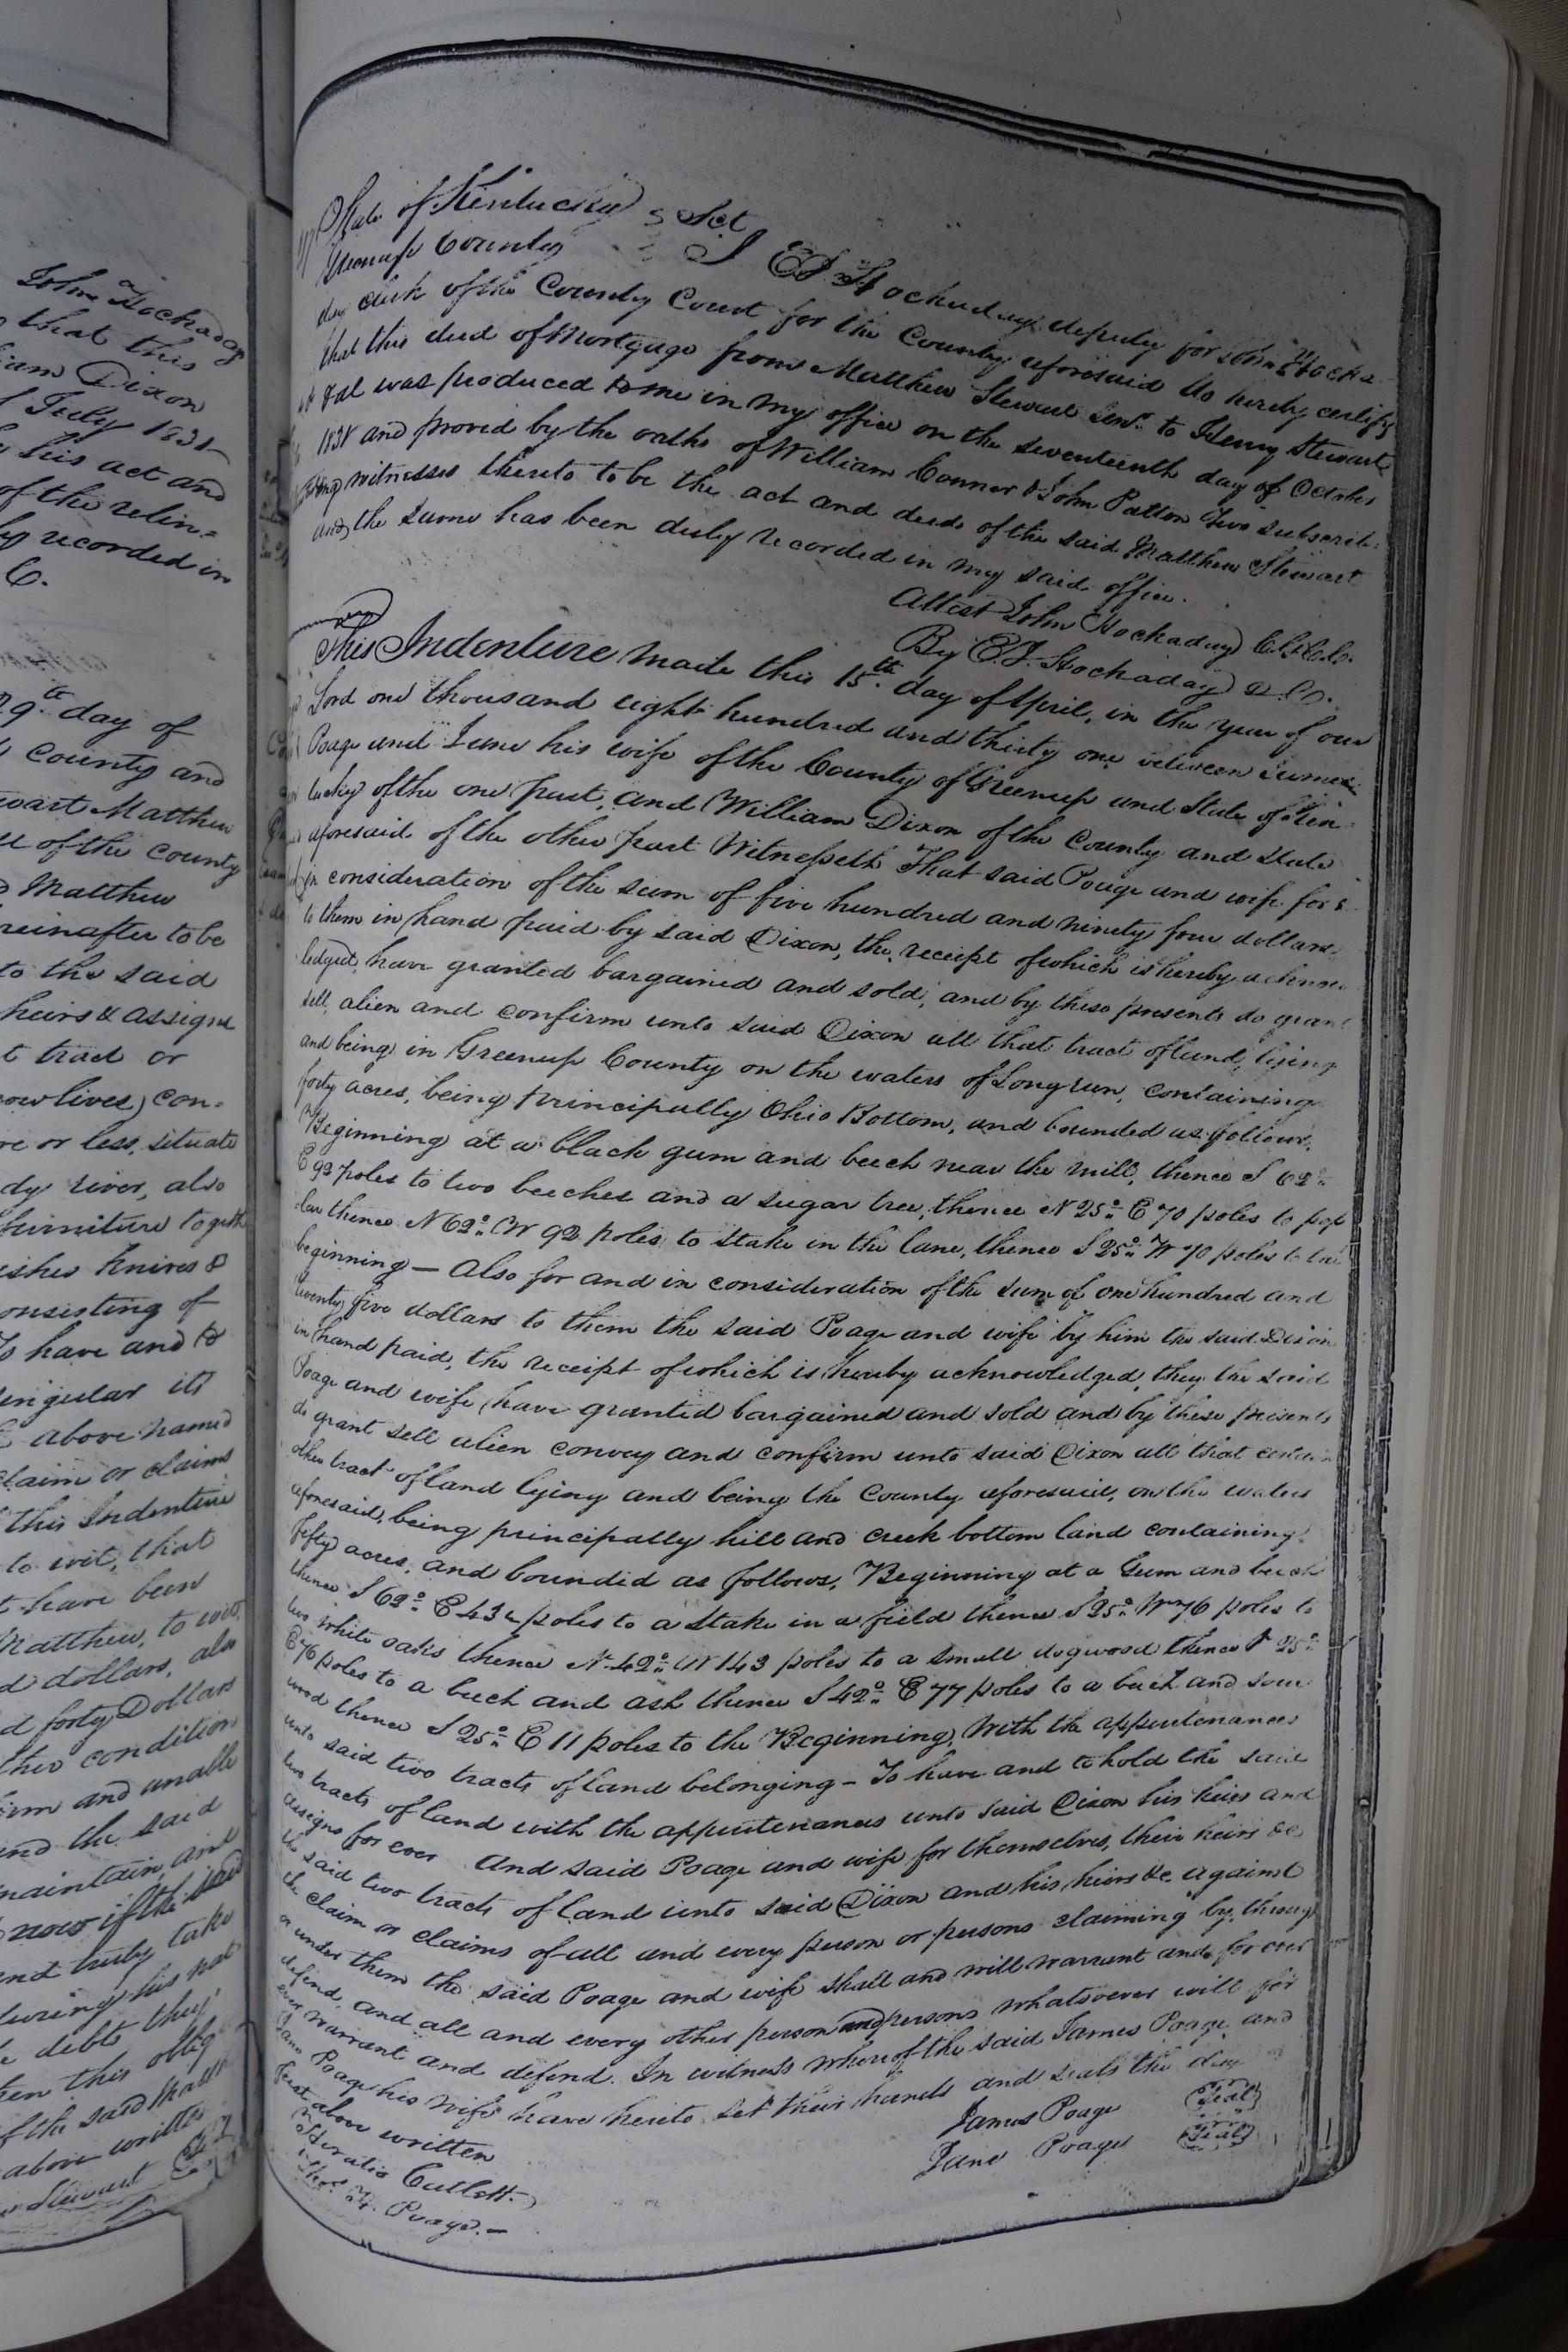 John Hockaday
that this
iam Dixon
July 1831
his act and
of the relin=
recorded in
C.
9th day of
County and
wart Matthew
of the county
Matthew
reinafter to be
to the said
heirs & assigns
t tract or
now lives) con=
re or less, situate
dy river, also
furniture togeth
ishes knives &
onsisting of
To have and to
singular its
above named
claim or claims
this Indenture
to wit, that
t have been
Matthew, to wit,
d dollars, also
d forty Dollars
this condition
irm and unable
and the said
maintain, and
now if the said
and truly take
during his nat
debts they
ten this oblig
if the said Matt
above written
Stewart
State of Kentucky Sct
Greenup County I E. J. Hockaday deputy for John Hocka
day clerk of the County Court for the County aforesaid do hereby certify
that this deed of Mortgage from Matthew Stewart Senr. to Henry Stewart
et al was produced to me in my office on the seventeenth day of October
1831 and proved by the oaths of William Conner & John Patton two subscrib=
ing witnesses thereto to be the act and deed of the said Matthew Stewart
and the same has been duly recorded in my said office.
Attest John Hockaday C.G.C.C.
By E.J. Hockaday D.C.
This Indenture made this 15th day of April, in the year of our
Lord one thousand eight hundred and thirty one between James
Poage and Jane his wife of the County of Greenup and State of Ken
tucky of the one part, and William Dixon of the County and State
aforesaid of the other part Witnesseth That said Poage and wife for &
in consideration of the sum of five hundred and ninety four dollars
to them in hand paid by said Dixon, the receipt of which is hereby acknow
ledged, have granted bargained and sold, and by these presents do grant
sell, alien and confirm unto said Dixon all that tract of land, lying
and being in Greenup County on the waters of Long run, containing
forty acres, being principally Ohio Bottom, and bounded as follows,
Beginning at a black gum and beech near the mill, thence S 62°
E 92 poles to two beeches and a sugar tree, thence N 25° E 70 poles to pop
lar thence N 62° W 92 poles to stake in the lane, thence S 25° W 70 poles to the
beginning — Also for and in consideration of the sum of one hundred and
twenty five dollars to them the said Poage and wife by him the said Dixon
in hand paid, the receipt of which is hereby acknowledged, they the said
Poage and wife have granted bargained and sold and by these presents
do grant sell alien convey and confirm unto said Dixon all that certain
other tract of land lying and being the County aforesaid, on the waters
aforesaid, being principally hill and creek bottom land containing
fifty acres, and bounded as follows, Beginning at a Gum and beech
thence S 62° E 43 poles to a stake in a field thence S 25° W 76 poles to
two white oaks thence N 42° W 143 poles to a small dogwood thence 25°
E 76 poles to a beech and ash thence S 42° E 77 poles to a beech and sour
wood thence S 25° E 11 poles to the Beginning, With the appurtenances
unto said two tracts of land belonging — To have and to hold the said
two tracts of land with the appurtenances unto said Dixon his heirs and
assigns for ever And said Poage and wife for themselves, their heirs &c
the said two tracts of land unto said Dixon and his heirs &c against
the claim or claims of all and every person or persons claiming by, throug
or under them the said Poage and wife shall and will warrant and for ever
defend, and all and every other person and persons whatsoever will for
ever warrant and defend. In witness whereof the said James Poage and
Jane Poage his wife have hereto set their hands and seals the day
first above written
James Poage (Seal)
Jane Poage (Seal)
Horatio Catlett
H. Poage.—